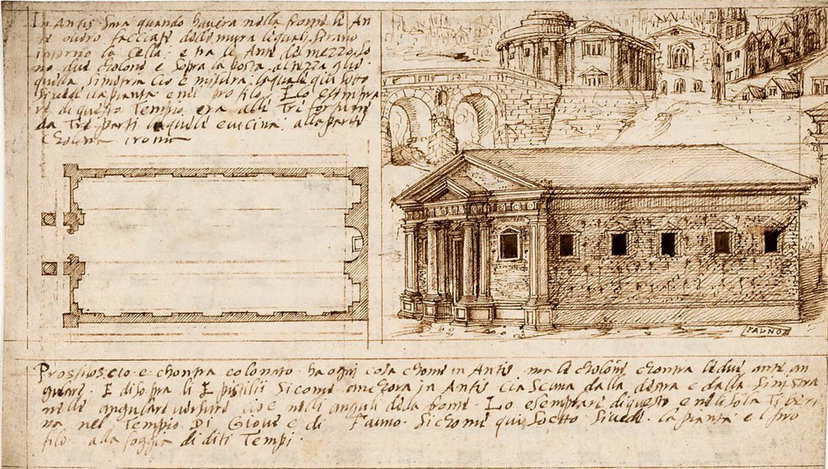 In Antis sara quando havera nella fronte le An
te overo facciate delle mura le quali serano
intorno la Cella: e tra le Ante del mezzo so
no due cholone e sopra la
quella simetria cio e misura: la quale qui sotto
si vede la pianta e nel profilo. E lo esempra
re di questo Tempio era alle Tre fortune
da Tre parti la quella e vicina: alla parte
cholona
Prostilos cio e chontra colonato. ha ogni cosa chome in Antis. ma le cholone chontra le due ante an
gulare. E di sopra li Epistilii si come anchora in Antis ciascuna dalla destra e dalla sinistra
nelle angulare versure cio e nelli anguli della fronte. Lo esemplare di questo e nel isola Tiberi
na nel Tempio Di Giove e di Fauno. si chome qui sotto si vede. la pianta e il pro
filo. alla foggia di diti Tempi.
FAUNO